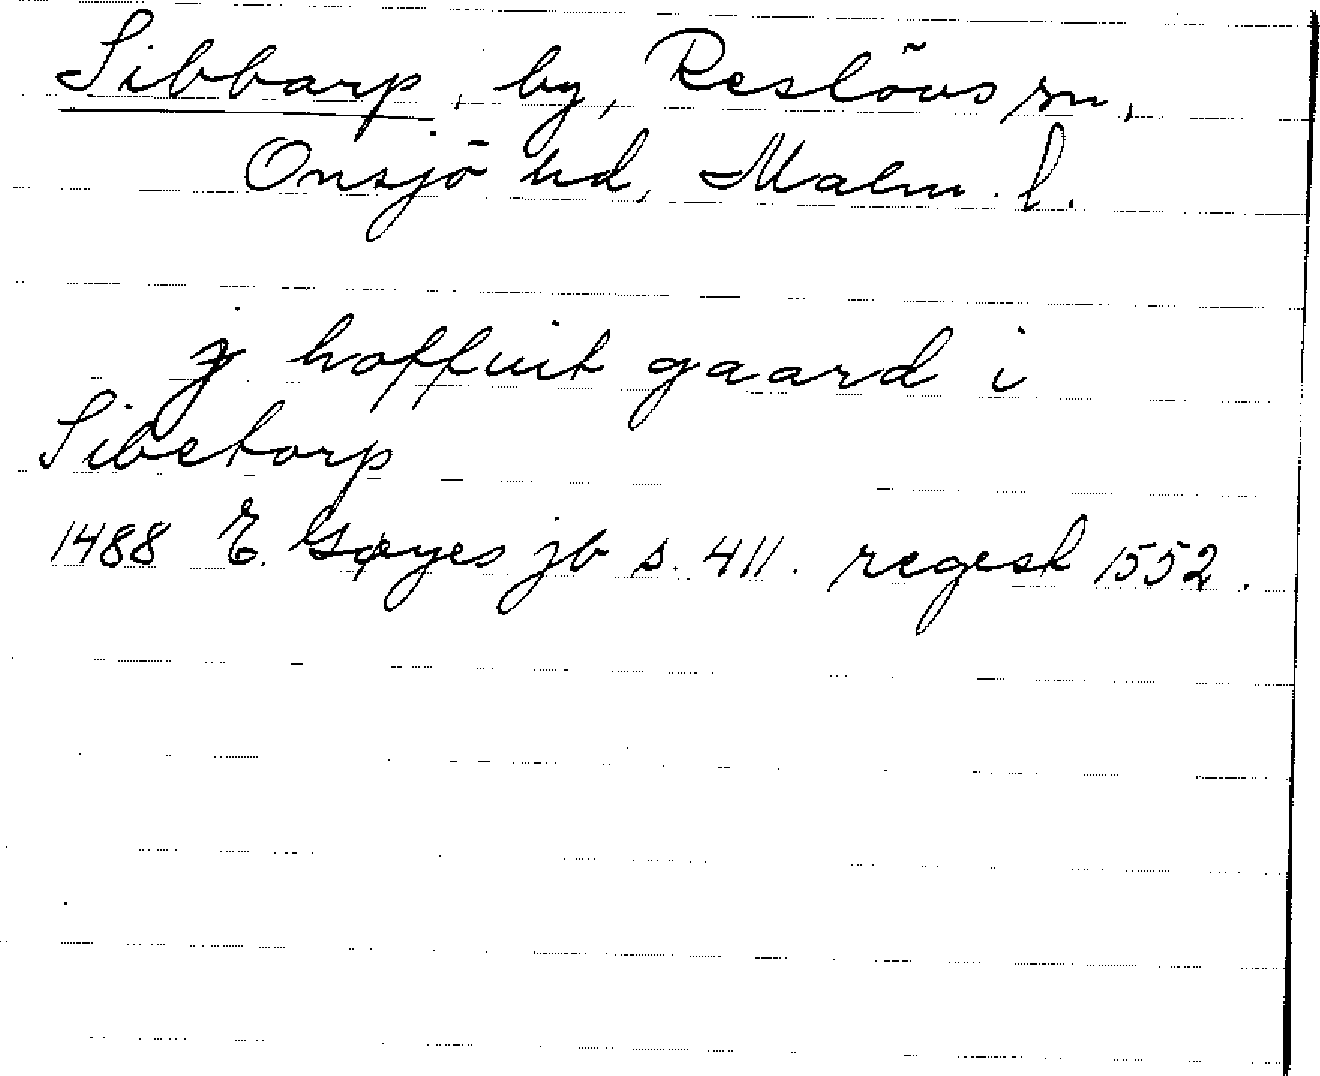 Sibbarp, by, Reslövs sn,
Onsjö hd, Malm. l.
j hoffuit gaard i
Sibetorp
1488 E. Gøyes jb s. 411. regest 1552.